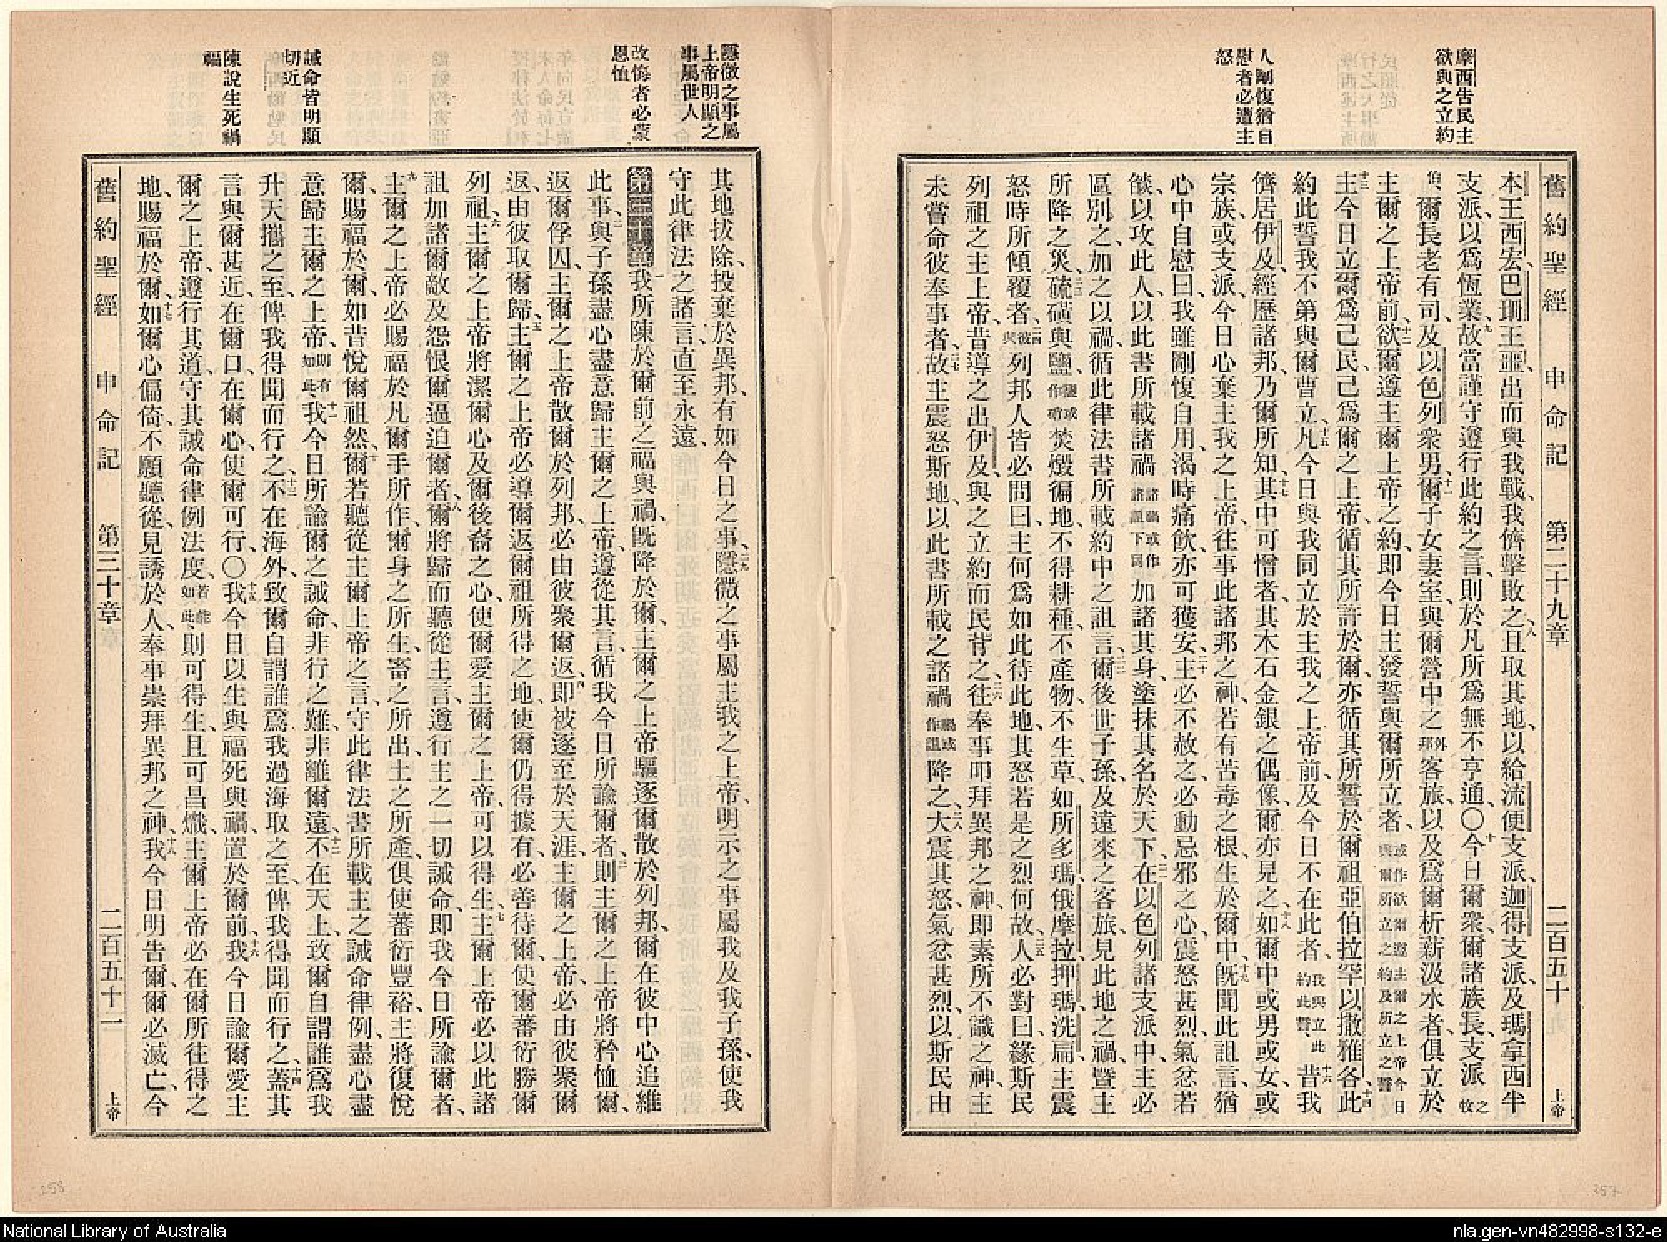 摩西告民主
欲與之立約
人剛愎猶自
慰者必遭主
怒
舊約聖經 申命記 第二十九章 二百五十 上帝
本王西宏巴珊王噩出而與我戰、我儕擊敗之、八且取其地、以給流便支派、迦得支派、及瑪拿西半
支派、以爲恆業、九故當謹守遵行此約之言、則於凡所爲無不亨通、〇十今日爾衆、爾諸族長、支派之牧
伯、爾長老有司、及以色列衆男、十一爾子女妻室、與爾營中之外邦客旅、以及爲爾析薪汲水者、俱立於
主爾之上帝前、十二欲爾遵主爾上帝之約、即今日主發誓與爾所立者、或作欲爾遵主爾之上帝今日與爾所立之約及所立之誓
十三主今日立爾爲己民、己爲爾之上帝、循其所許於爾、亦循其所誓於爾祖亞伯拉罕以撒雅各、十四此
約此誓、我不第與爾曹立、十五凡今日與我同立於主我之上帝前、及今日不在此者、我與立此約此誓、十六昔我
儕居伊及、經歷諸邦、乃爾所知、十七其中可憎者、其木石金銀之偶像、爾亦見之、十八如爾中或男或女、或
宗族、或支派、今日心棄主我之上帝、往事此諸邦之神、若有苦毒之根生於爾中、十九旣聞此詛言、猶
心中自慰曰、我雖剛愎自用、渴時痛飲、亦可獲安、二十主必不赦之、必動忌邪之心、震怒甚烈、氣忿若
燄、以攻此人、以此書所載諸禍諸禍或作諸詛下同加諸其身、塗抹其名於天下、二一在以色列諸支派中、主必
區別之、加之以禍、循此律法書所載約中之詛言、二二爾後世子孫、及遠來之客旅、見此地之禍、曁主
所降之災、二三硫磺與鹽鹽或作磠焚燬徧地、不得耕種、不產物、不生草、如所多瑪俄摩拉押瑪洗扁、主震
怒時所傾覆者、二四彼與列邦人皆必問曰、主何爲如此待此地、其怒若是之烈何故、二五人必對曰、緣斯民
列祖之主上帝、昔導之出伊及、與之立約、而民背之、二六往奉事叩拜異邦之神、即素所不識之神、主
未嘗命彼奉事者、二七故主震怒斯地、以此書所載之諸禍禍或作詛降之、二八大震其怒、氣忿甚烈、以斯民由
隱微之事屬
上帝明顯之
事屬世人
改悔者必蒙
恩恤
誡命皆明顯
切近
陳說生死禍
福
其地拔除、投棄於異邦、有如今日之事、二九隱微之事屬主我之上帝、明示之事屬我及我子孫、使我
守此律法之諸言、直至永遠、
第三十章 一我所陳於爾前之福與禍、旣降於爾、主爾之上帝驅逐爾散於列邦、爾在彼中心追維
此事、二與子孫盡心盡意歸主爾之上帝、遵從其言、循我今日所諭爾者、三則主爾之上帝將矜恤爾、
返爾俘囚、主爾之上帝散爾於列邦、必由彼聚爾返、四即被逐至於天涯、主爾之上帝、必由彼聚爾
返、由彼取爾歸、五主爾之上帝必導爾返爾祖所得之地、使爾仍得據有、必善待爾、使爾蕃衍勝爾
列祖、六主爾之上帝將潔爾心及爾後裔之心、使爾愛主爾之上帝、可以得生、七主爾上帝必以此諸
詛加諸爾敵及怨恨爾逼迫爾者、八爾將歸而聽從主言、遵行主之一切誡命、即我今日所諭爾者、
九主爾之上帝必賜福於凡爾手所作、爾身之所生、畜之所出、土之所產、俱使蕃衍豐裕、主將復悅
爾、賜福於爾、如昔悅爾祖然、十爾若聽從主爾上帝之言、守此律法書所載主之誡命律例、盡心盡
意歸主爾之上帝、則有如此、十一我今日所諭爾之誡命、非行之難、非離爾遠、十二不在天上、致爾自謂誰爲我
升天攜之至、俾我得聞而行之、十三不在海外、致爾自謂誰爲我過海取之至、俾我得聞而行之、十四蓋其
言與爾甚近、在爾口、在爾心、使爾可行、〇十五我今日以生與福、死與禍、置於爾前、十六我今日諭爾愛主
爾之上帝、遵行其道、守其誡命律例法度、若能如此、則可得生、且可昌熾、主爾上帝必在爾所往得之
地、賜福於爾、十七如爾心偏倚、不願聽從、見誘於人、奉事崇拜異邦之神、十八我今日明告爾、爾必滅亡、今
舊約聖經 申命記 第三十章 二百五十一 上帝
258
257
National Library of Australia
nla.gen-vn482998-s132-e